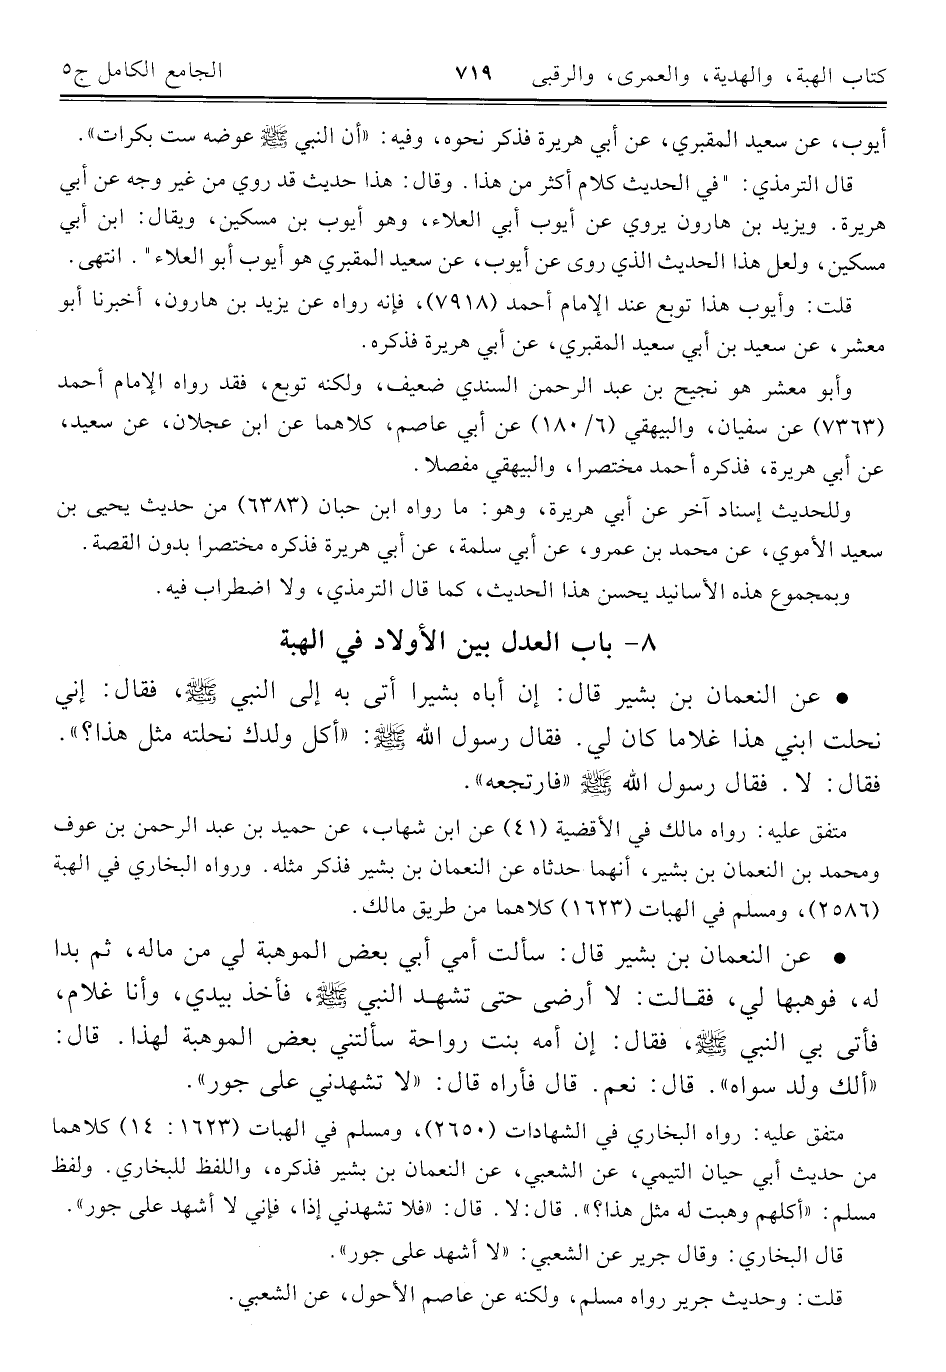 كتاب الهبة، والهدية، والعمرى، والرقبى ٧١٩ الجامع الكامل ج٥
أيوب، عن سعيد المقبري، عن أبي هريرة فذكر نحوه، وفيه: «أن النبي ﷺ عوضه ست بكرات».
قال الترمذي: "في الحديث كلام أكثر من هذا. وقال: هذا حديث قد روي من غير وجه عن أبي
هريرة. ويزيد بن هارون يروي عن أيوب أبي العلاء، وهو أيوب بن مسكين، ويقال: ابن أبي
مسكين، ولعل هذا الحديث الذي روى عن أيوب، عن سعيد المقبري هو أيوب أبو العلاء". انتهى.
قلت: وأيوب هذا توبع عند الإمام أحمد (٧٩١٨)، فإنه رواه عن يزيد بن هارون، أخبرنا أبو
معشر، عن سعيد بن أبي سعيد المقبري، عن أبي هريرة فذكره.
وأبو معشر هو نجيح بن عبد الرحمن السندي ضعيف، ولكنه توبع، فقد رواه الإمام أحمد
(٧٣٦٣) عن سفيان، والبيهقي (٦/ ١٨٠) عن أبي عاصم، كلاهما عن ابن عجلان، عن سعيد،
عن أبي هريرة، فذكره أحمد مختصرا، والبيهقي مفصلا.
وللحديث إسناد آخر عن أبي هريرة، وهو: ما رواه ابن حبان (٦٣٨٣) من حديث يحيى بن
سعيد الأموي، عن محمد بن عمرو، عن أبي سلمة، عن أبي هريرة فذكره مختصرا بدون القصة.
وبمجموع هذه الأسانيد يحسن هذا الحديث، كما قال الترمذي، ولا اضطراب فيه.
٨- باب العدل بين الأولاد في الهبة
• عن النعمان بن بشير قال: إن أباه بشيرا أتى به إلى النبي ﷺ، فقال: إني
نحلت ابني هذا غلاما كان لي. فقال رسول الله ﷺ: «أكل ولدك نحلته مثل هذا؟».
فقال: لا. فقال رسول الله ﷺ «فارتجعه».
متفق عليه: رواه مالك في الأقضية (٤١) عن ابن شهاب، عن حميد بن عبد الرحمن بن عوف
ومحمد بن النعمان بن بشير، أنهما حدثاه عن النعمان بن بشير فذكر مثله. ورواه البخاري في الهبة
(٢٥٨٦)، ومسلم في الهبات (١٦٢٣) كلاهما من طريق مالك.
• عن النعمان بن بشير قال: سألت أمي أبي بعض الموهبة لي من ماله، ثم بدا
له، فوهبها لي، فقالت: لا أرضى حتى تشهد النبي ﷺ، فأخذ بيدي، وأنا غلام،
فأتى بي النبي ﷺ، فقال: إن أمه بنت رواحة سألتني بعض الموهبة لهذا. قال:
«ألك ولد سواه». قال: نعم. قال فأراه قال: «لا تشهدني على جور».
متفق عليه: رواه البخاري في الشهادات (٢٦٥٠)، ومسلم في الهبات (١٦٢٣: ١٤) كلاهما
من حديث أبي حيان التيمي، عن الشعبي، عن النعمان بن بشير فذكره، واللفظ للبخاري. ولفظ
مسلم: «أكلهم وهبت له مثل هذا؟». قال:لا. قال: «فلا تشهدني إذا، فإني لا أشهد على جور».
قال البخاري: وقال جرير عن الشعبي: «لا أشهد على جور».
قلت: وحديث جرير رواه مسلم، ولكنه عن عاصم الأحول، عن الشعبي.